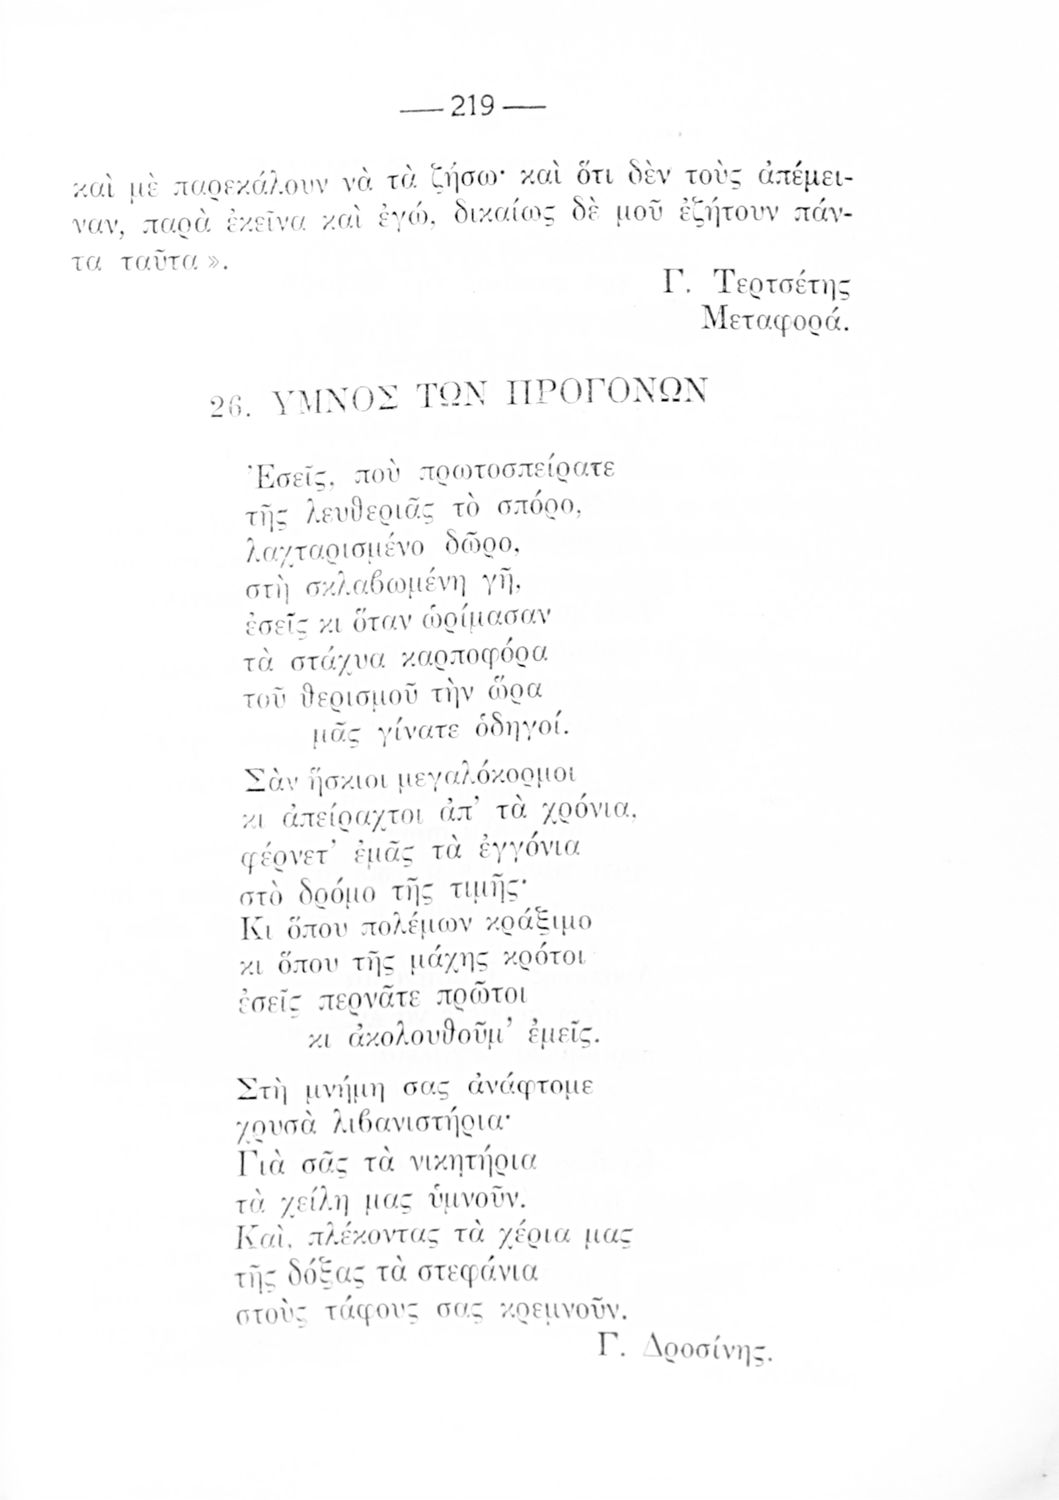 — 219 —
καὶ μὲ παρεκάλουν νὰ τὰ ζήσω· καὶ ὅτι δὲν τοὺς ἀπέμει-
ναν, παρὰ ἐκεῖνα καὶ ἐγώ, δικαίως δὲ μοῦ ἐζήτουν πάν-
τα ταῦτα».
Γ. Τερτσέτης
Μεταφορά.
26. ΥΜΝΟΣ ΤΩΝ ΠΡΟΓΟΝΩΝ
Ἐσεῖς, ποὺ πρωτοσπείρατε
τῆς λευθεριᾶς τὸ σπόρο,
λαχταρισμένο δῶρο,
στὴ σκλαβωμένη γῆ,
ἐσεῖς κι ὅταν ὡρίμασαν
τὰ στάχυα καρποφόρα
τοῦ θερισμοῦ τὴν ὥρα
μᾶς γίνατε ὁδηγοί.
Σὰν ἥσκιοι μεγαλόκορμοι
κι ἀπείραχτοι ἀπ’ τὰ χρόνια,
φέρνετ’ ἐμᾶς τὰ ἐγγόνια
στὸ δρόμο τῆς τιμῆς·
Κι ὅπου πολέμων κράξιμο
κι ὅπου τῆς μάχης κρότοι
ἐσεῖς περνᾶτε πρῶτοι
κι ἀκολουθοῦμ’ ἐμεῖς.
Στὴ μνήμη σας ἀνάφτομε
χρυσὰ λιβανιστήρια·
Γιὰ σᾶς τὰ νικητήρια
τὰ χείλη μας ὑμνοῦν.
Καὶ, πλέκοντας τὰ χέρια μας
τῆς δόξας τὰ στεφάνια
στοὺς τάφους σας κρεμνοῦν.
Γ. Δροσίνης.